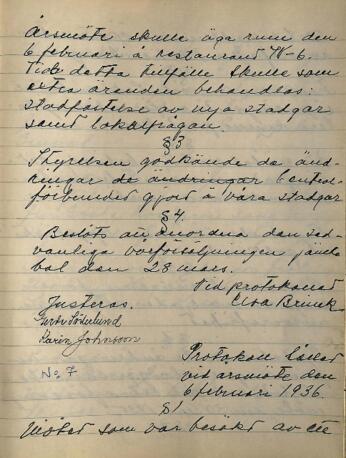 Årsmöte skulle äga rum den
6 februari å restaurant W-6.
Vid detta tillfälle skulle som
extra ärenden behandlas:
stadfästelse av nya stadgar
samt lokalfrågan.
§ 3
Styrelsen godkände de änd-
ringar de ändringar Central-
förbundet gjort i våra stadgar
§ 4.
Beslöts att anordna den sed-
vanliga vårförsäljningen jämte
bal den 28 mars.
Vid protokollet
Elsa Brink
Justeras.
Söderlund
Karin Johnsson
No 7
Protokoll
vid årsmöte den
6 februari 1936.
§ 1
Mötet som var besökt av ett